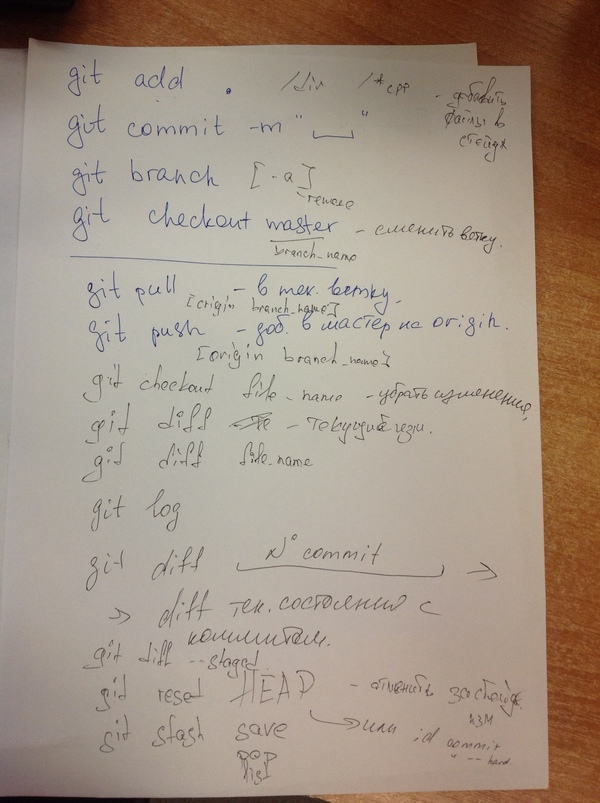 git add . /dir /*cpp - добавить
файлы в
стейдж
git commit -m "⎵"
git branch [-a]
remove
git checkout master - сменить ветку.
branch_name
git pull - в тек. ветку.
[origin branch_name]
git push - доб. в мастер на origin.
[origin branch_name]
git checkout file_name - убрать изменения,
git diff - текущие изм.
git diff file_name
git log
git diff N° commit →
→ diff тек. состояния с
коммитом.
git diff --staged
git reset HEAP - отменить застейдж.
изм
→ или id commit
" -- hard
git stash save
pop
list